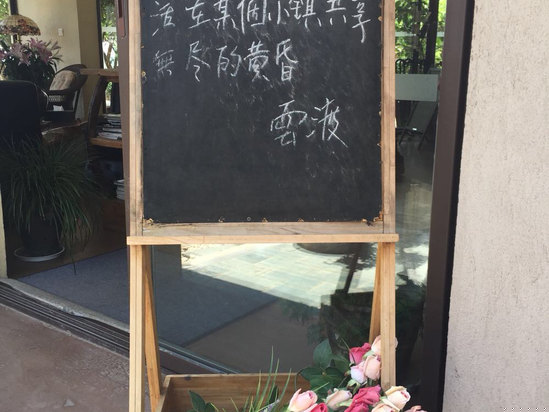 活在某個小鎮共享
無尽的黄昏
雲渡